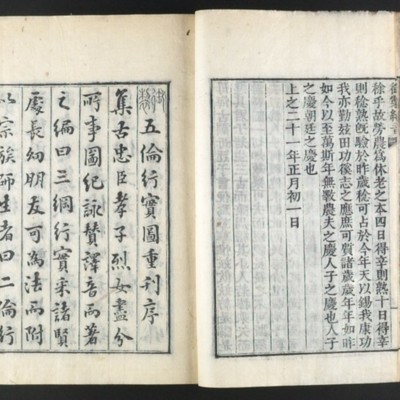 徐乎故勞農為休老之本四日得辛則熟十日得辛
則稔熟旣驗於昨歲稔可占於今年天以錫我康功
我亦勤玆田功徯志之應庶可質諸歲歲年年如昨
如今以至萬斯年無斁農夫之慶人子之慶也人子
之慶朝廷之慶也
上之二十一年正月初一日
御製
五倫行實圖重刊序
集古忠臣孝子烈女盡分
所事圖紀詠贊譯音而著
之編曰三綱行實采諸賢
處長幼朋友可為法而附
以宗族師生者曰二倫行